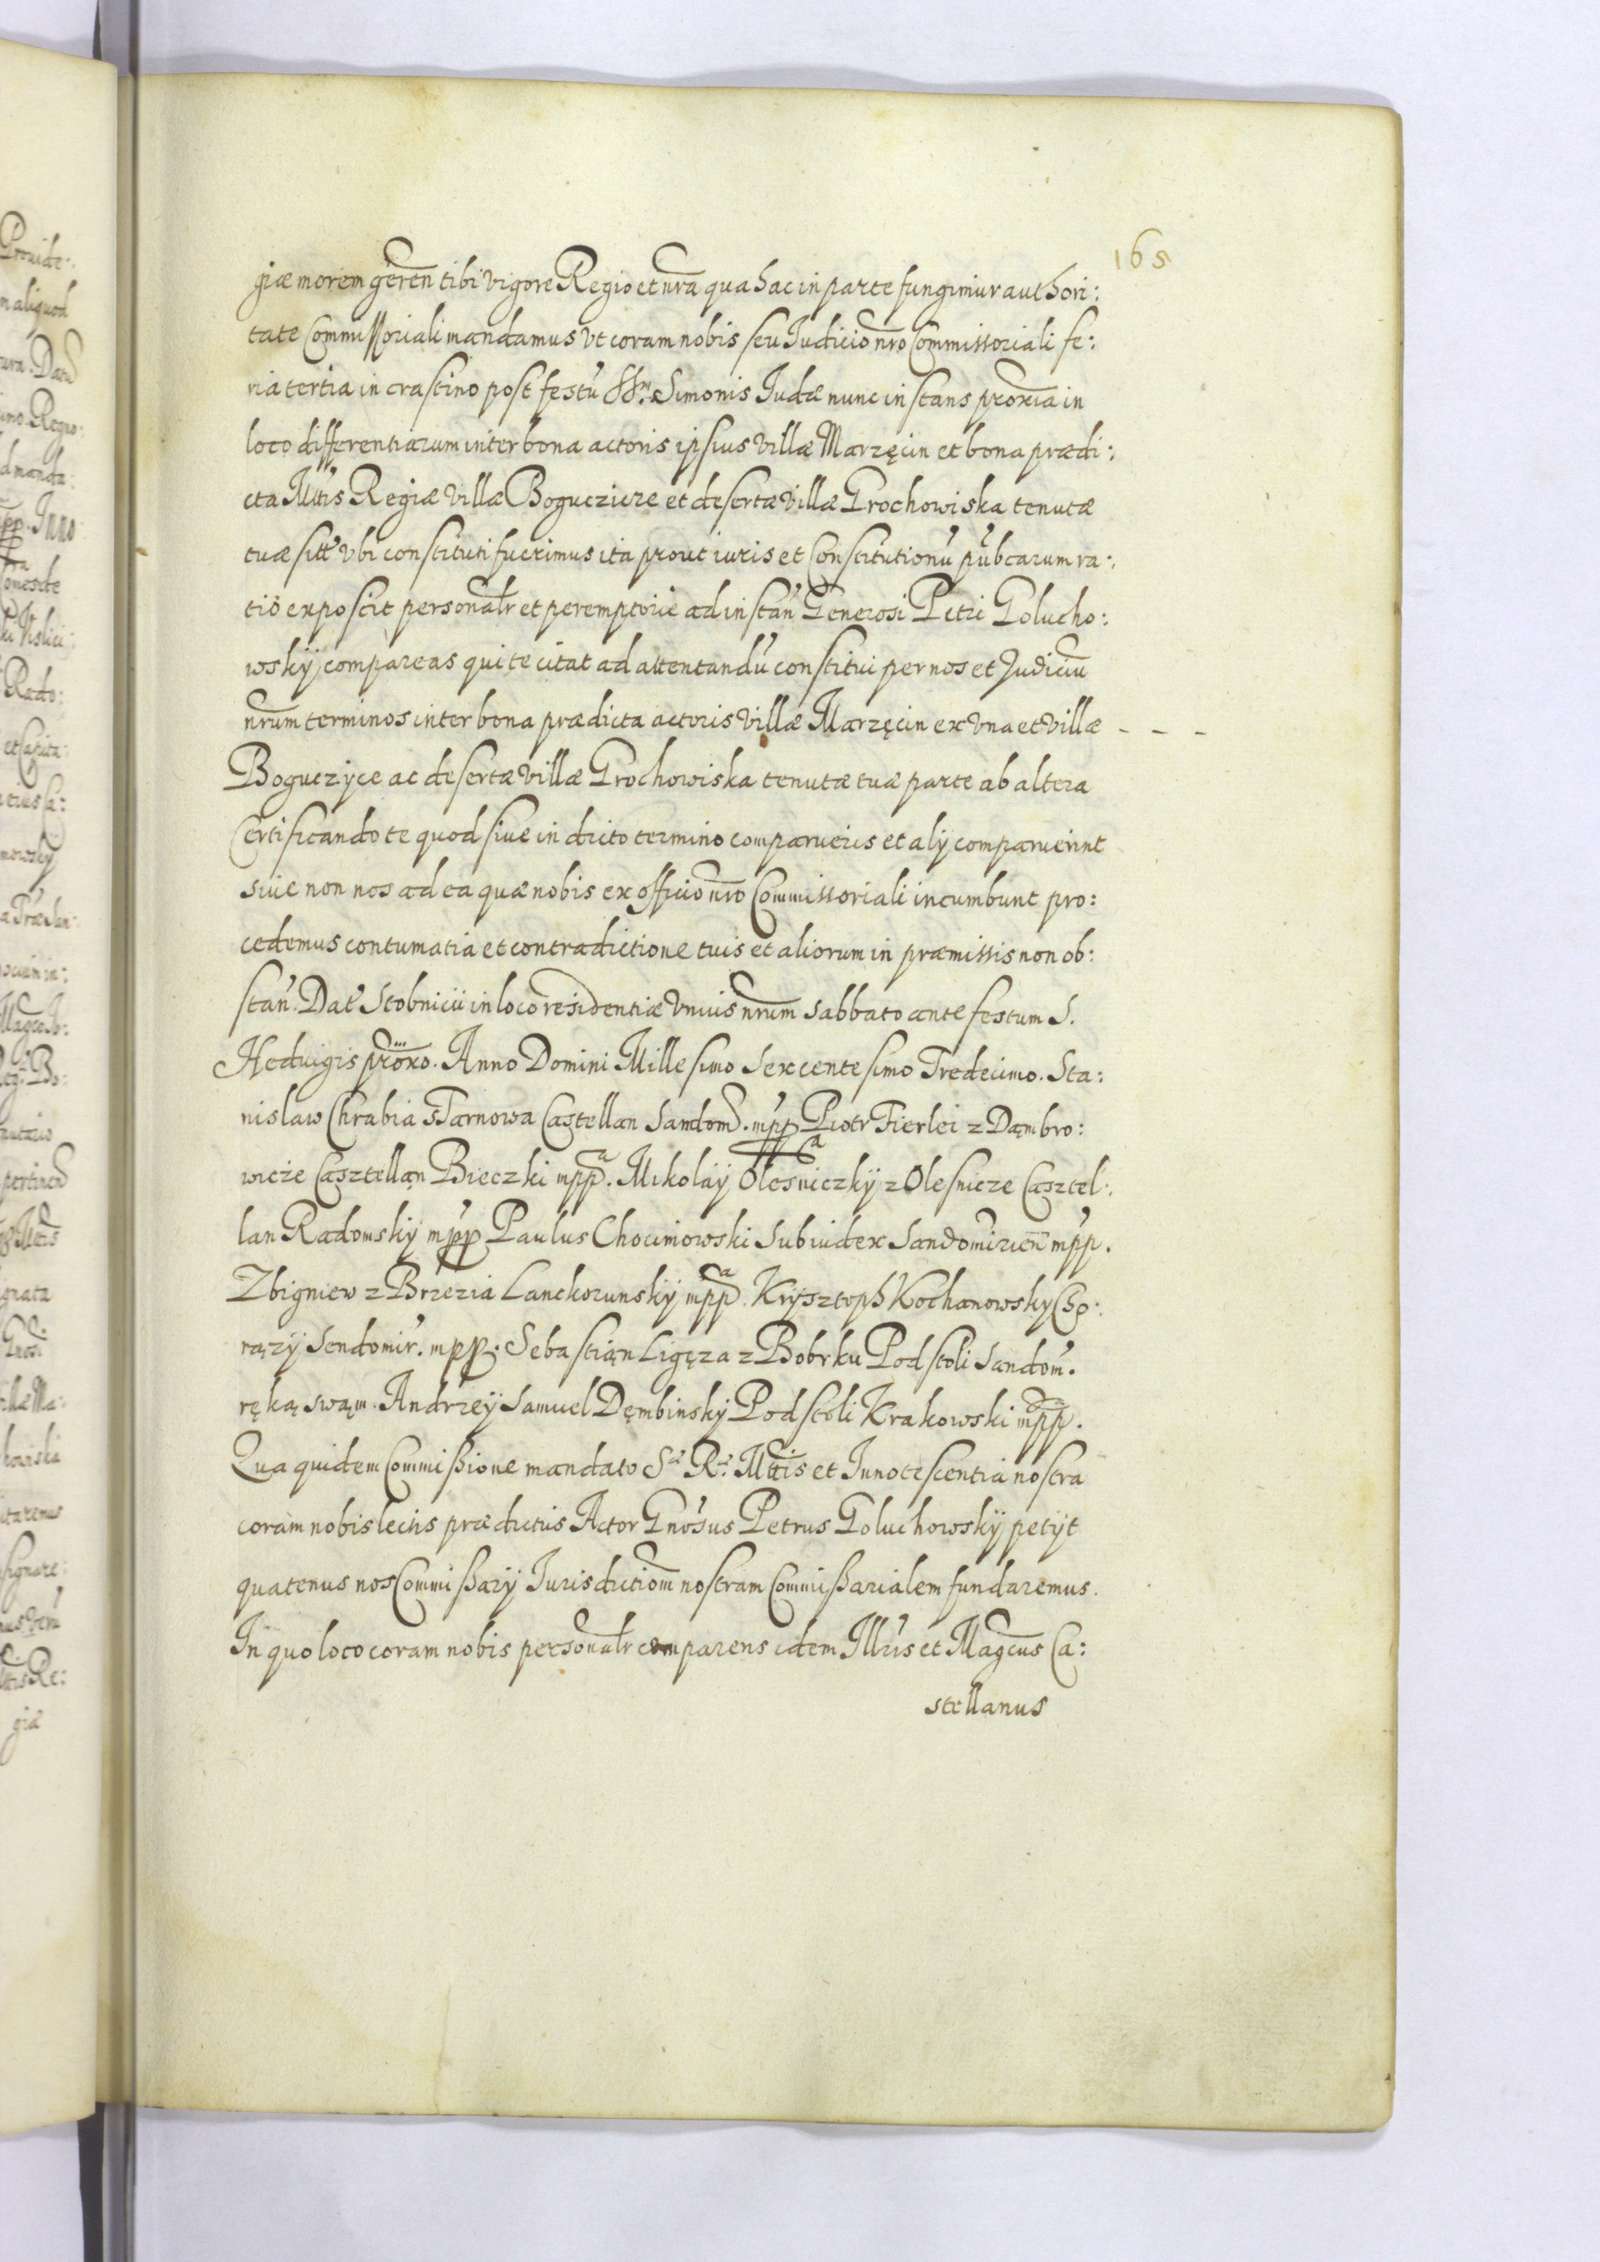 165
giæ morem geren̄ tibi vigore Regio et nr̄a qua hac in parte fungimur authori:
tate Commissoriali mandamus vt coram nobis seu Iudicio nr̄o Commissoriali fe:
ria tertia in crastino post festu' SS. Simonis Iudæ nunc instans prox̄ia in
loco differentiarum inter bona actoris ipsius villæ Marzęcin et bona prædi:
cta Mtis Regiæ villæ Bogucziце et desertæ villæ Grochowiska tenutæ
tuæ sitt' vbi constituti fuerimus ita prout iuris et Constitutionu' pub̄carum ra:
tio exposcit personalr et peremptorie ad instan' Generosi Petri Golucho:
wskÿ compareas qui te citat ad attentandu' constitui per nos et Judiciu'
nr̄um terminos inter bona prædicta actoris villæ Marzęcin ex vna et villæ - - -
Boguczyce ac desertæ villæ Grochowiska tenutæ tuæ parte ab altera
Certificando te quod siue in dicto termino comparueris et alÿ comparuerint
siue non nos ad ea quæ nobis ex officio nr̄o Commissoriali incumbunt pro:
cedemus contumatia et contradictione tuis et aliorum in præmissis non ob:
stan'. Dat' Stobnicii in loco residentiæ vnius nr̄um sabbato ante festum S.
Hedvigis prox̄o. Anno Domini Millesimo Sexcentesimo Tredecimo. Sta:
nislaw Chrabia s Tarnowa Casztellan Sandom. mpp Piotr Fierlei z Dąmbro:
wicze Casztelląn Bieczki mppa. Mikoláÿ Olesniczkÿ z Olesnicze Casztel:
lan Radomskÿ mpp Paulus Chocimowski Subiudex Sandomirien̄ mpp.
Zbigniew z Brzezia Lanckorunskÿ mppa. Krÿsztoph Kochanowskÿ Cho:
rązÿ Sendomir. mpp. Sebastiąn Ligęza z Bobrku Podstoli Sandom.
ręką swąm. Andrzeÿ Samuel Dęmbinskÿ Podstoli Krakowski mpp.
Qua quidem Commißione mandato Sæ Ræ Mttis et Innotescentia nostra
coram nobis lectis prædictus Actor Gnosus Petrus Goluchowskÿ petÿt
quatenus nos Commißarÿ Iurisdictiom̄ nostram Commißarialem fundaremus.
In quo loco coram nobis personalr comparens idem Illris et Magcus Ca:
stellanus